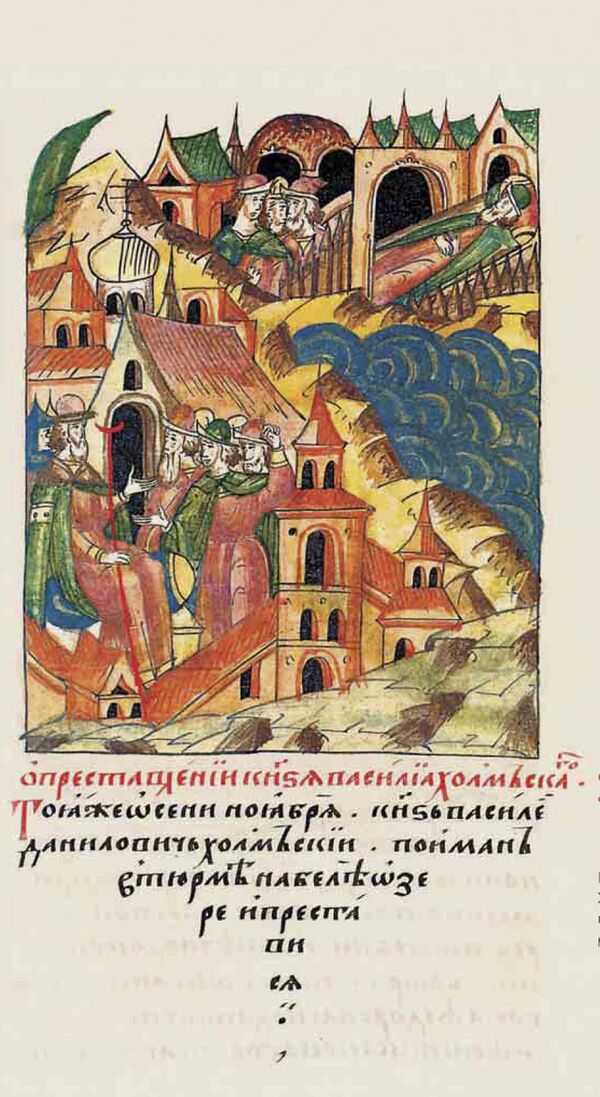 ѻ преставленїи кнѕѧ василїа холмъскаго.
Тоѧ̑же ѻсени ноѧбрѧ. кнѕь василе
даниловичь холмъскїи. поиман в
в тюрмѣ на белѣѡзе
ре и преста
ви
сѧ